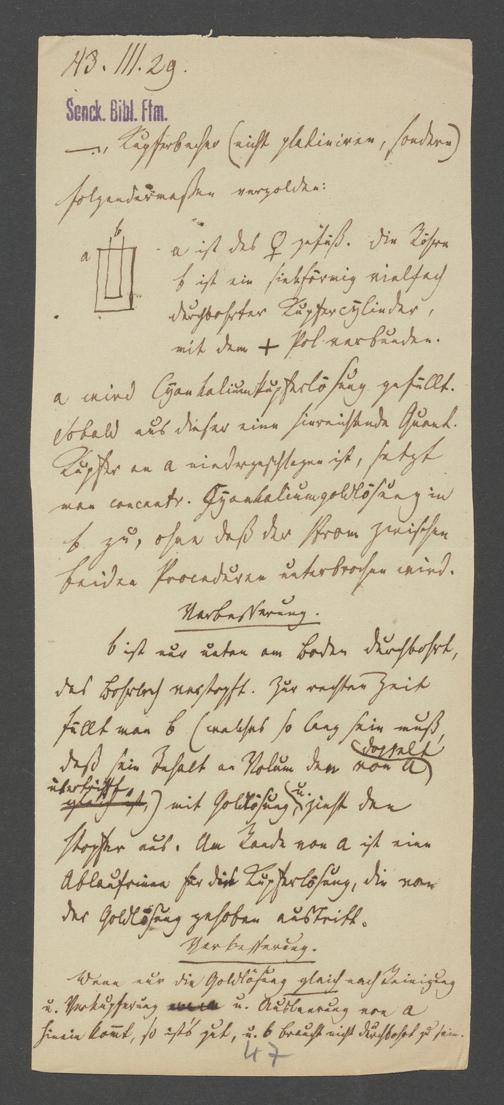 43. III. 29.
Senck. Bibl. Ffm.
—, Kupferbecher (nicht platiniren, sondern)
folgendermaßen vergolden:
b
a
a ist das ♀ gefäß. Die Röhre
b ist ein siebförmig vielfach
durchbohrter Kupfercylinder,
mit dem + Pol verbunden.
a wird Cyankaliumkupferlösung gefüllt.
Sobald aus dieser eine hinreichende Quant.
Kupfer an a niedergeschlagen ist, setzt
man concentr. Cyankaliumgoldlösung in
b zu, ohne daß der Strom zwischen
beiden Proceduren unterbrochen wird.
Verbesserung.
b ist nur unten am Boden durchbohrt,
das Bohrloch verstopft. Zur rechten Zeit
füllt man b (welches so lang sein muß,
daß sein Gehalt an Volum den von a
doppelt
übertrifft,
gleich ist,) mit Goldlösung, u. zieht den
Stopfer aus. Am Rande von a ist eine
Ablaufrinne für die Kupferlösung, die von
der Goldlösung gehoben austritt.
Verbesserung.
Wenn nur die Goldlösung gleich nach Reinigung
u. Verkupferung u. Ausleerung von a
hinein kommt, so ist's gut, u. b braucht nicht durchbohrt zu sein.
47